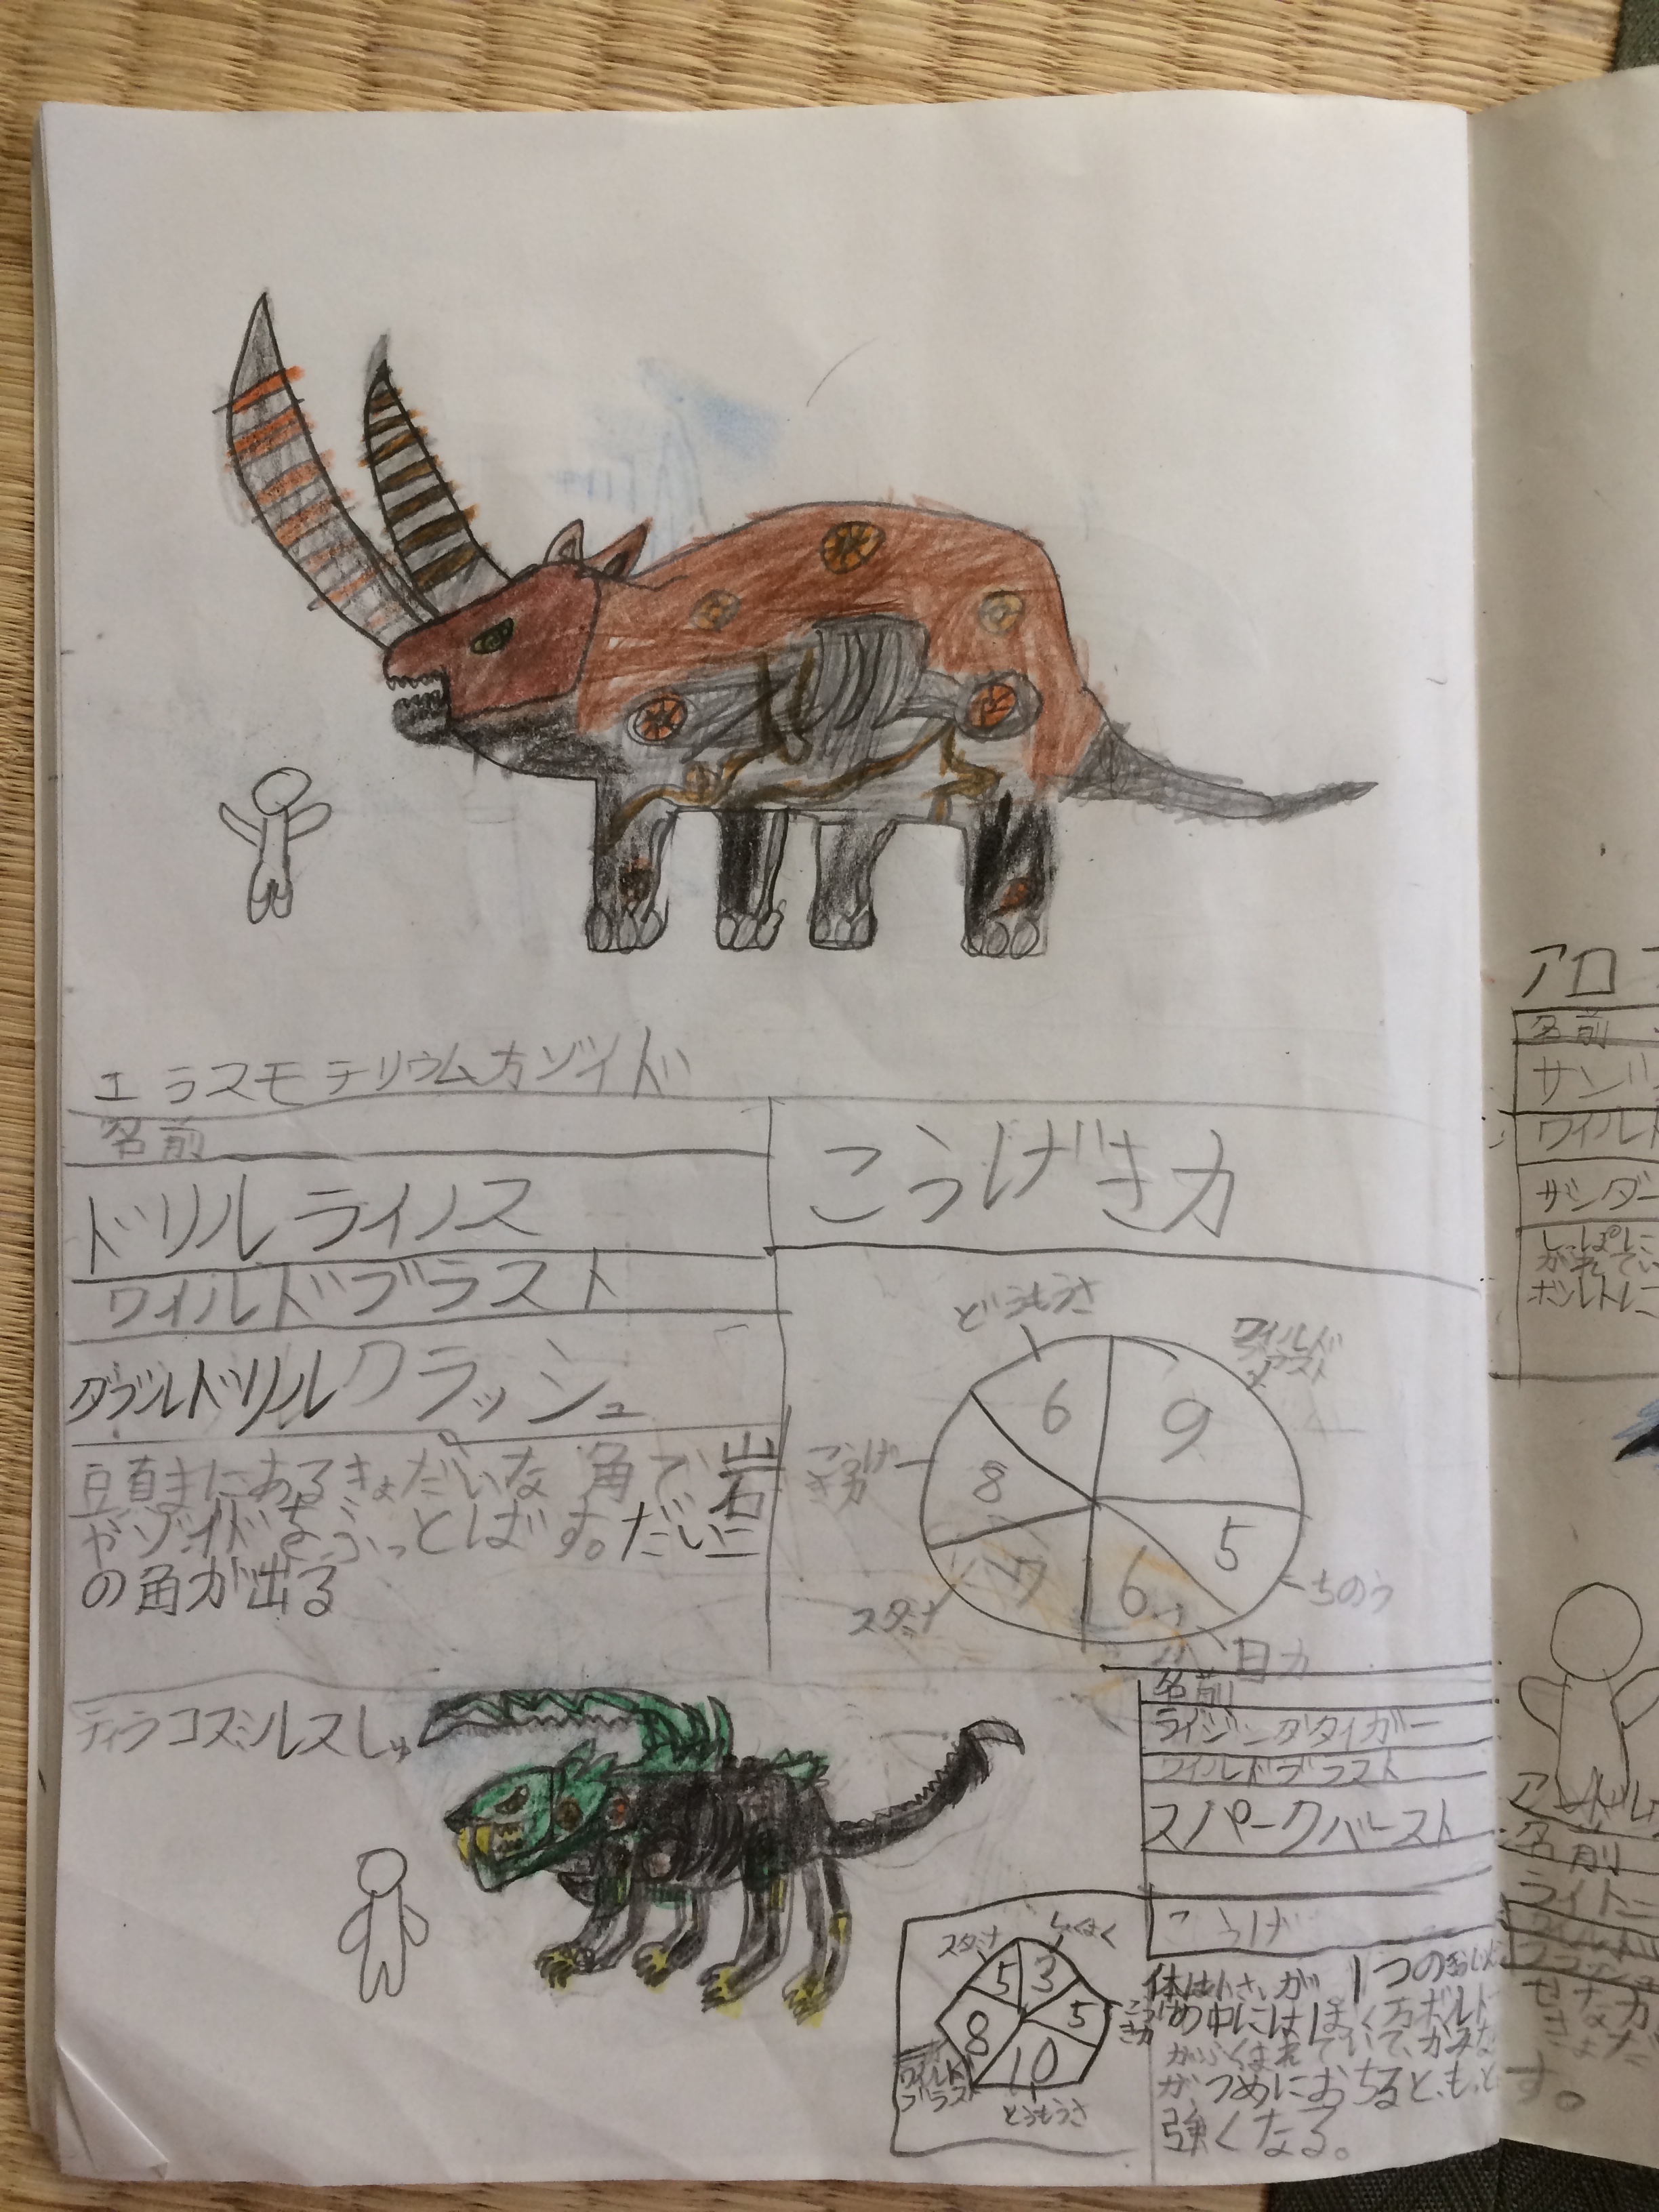 エラスモテリウム方ゾイド
名前
ドリルライノス
ワイルドブラスト
ダブルドリルクラッシュ
頭まにあるきょだいな角で岩
やゾイドをふっとばす。だい二
の角が出る
こうげき力
どうもうさ
ワイルド
ブラスト
6
9
こうげ
き力
8
5
ちのう
7
6
スタミナ
目力
ティラコスミルスしゅ
名前
ライジングタイガー
ワイルドブラスト
スパークバースト
こうげ
スタミナ
5
3
8
5
こうげ
き力
10
ワイルド
ブラスト
どうもうさ
体は小さいが、1つの
め中には1まんボルト
がふくまれていて、かみな
が、つめにおちると、もっと
強くなる。
アロ
名前
サンダ
ワイルド
サンダー
しっぽに
がれてい
ボルトに
名前
ライトニ
ワイルド
す。